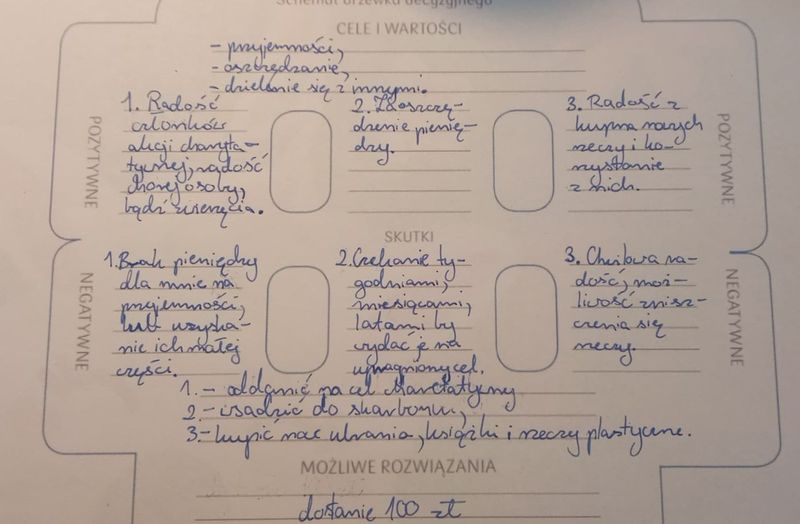 Schemat drzewka decyzyjnego
CELE I WARTOŚCI
- przyjemności,
- oszczędzanie,
- dzielenie się z innymi.
POZYTYWNE
1. Radość
członków
akcji charyta-
tywnej, radość
chorej osoby,
bądź zwierzęcia.
2. Zaoszczę-
dzenie pienię-
dzy.
3. Radość z
kupna nowych
rzeczy i ko-
rzystanie
z nich.
POZYTYWNE
SKUTKI
NEGATYWNE
1. Brak pieniędzy
dla mnie na
przyjemności,
lub uzyska-
nie ich małej
części.
2. Czekanie ty-
godniami,
miesiącami,
latami by
wydać je na
upragniony cel.
3. Chwilowa ra-
dość, moż-
liwość znisz-
czenia się
rzeczy.
NEGATYWNE
1. - oddanie na cel
2. - wsadzić do skarbonki,
3. - kupić ubrania, książki i rzeczy plastyczne.
MOŻLIWE ROZWIĄZANIA
dostanie 100 zł